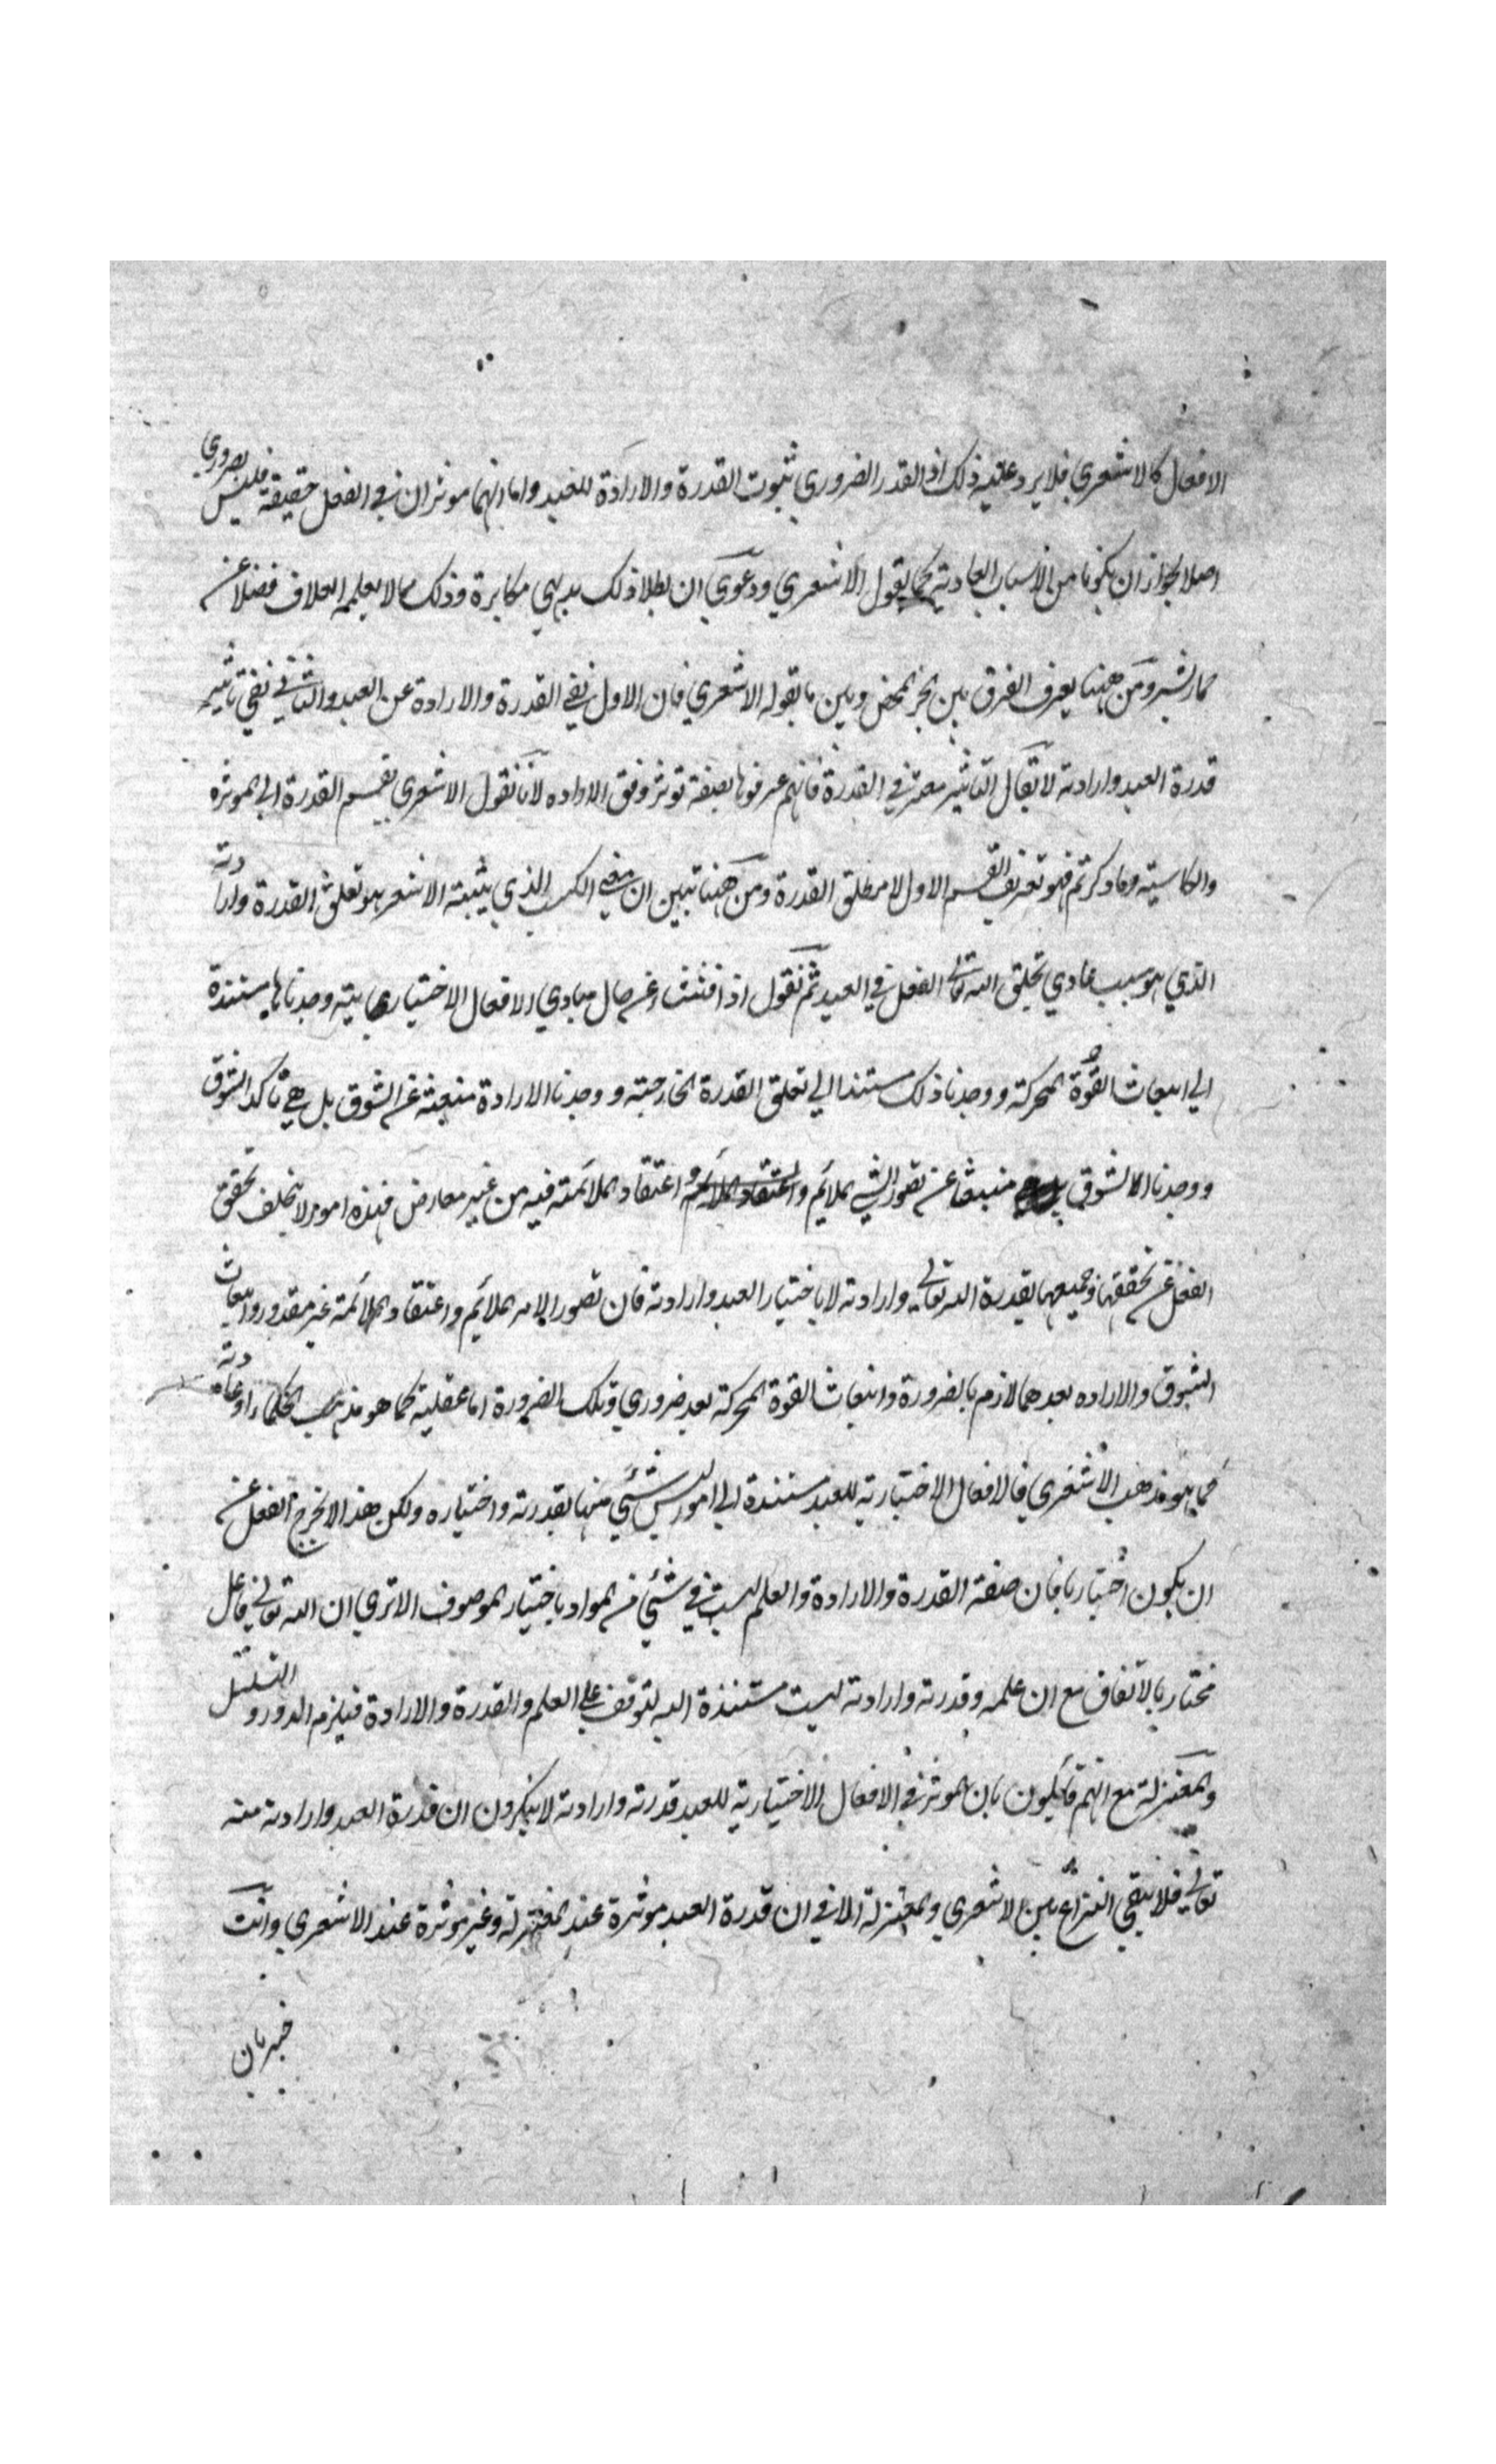 الافعال كالاشعري فلا يرد عليه ذلك اذ القدر الضروري ثبوت القدرة والارادة للعبد واما انهما موثران في الفعل حقيقة فليس بضروري
اصلا لجواز ان يكونا من الاسباب العادية كما يقول الاشعري ودعوي ان بطلا ذلك بديهي مكابرة وذلك مما لا يعلمه العلاف فضلا عن
حمار بشر ومن ههنا يعرف الفرق بين الجبر المحض وبين ما يقوله الاشعري فان الاول نفي القدرة والارادة عن العبد والثاني نفي تاثير
قدرة العبد وارادته لا يقال التاثير معتبر في القدرة فانهم عرفوها بصفة توثر وفق الاراده لانا نقول الاشعري يقسم القدرة الي الموثرة
والكاسبة وما ذكرتم فهو تعريف القسم الاول لا مطلق القدرة ومن ههنا تبين ان معني الكسب الذي يثبته الاشعر هو تعلق القدرة وارادته
الذي هو سبب عادي لخلق الله تعالي الفعل في العبد ثم نقول اذا فتشنا عن حال مبادي الافعال الاختيارية وجدناها مستندة
الي انبعاث القوة المحركة ووجدنا ذلك مستندا الي تعلق القدرة الخارجية ووجدنا الارادة منبعثة عن الشوق بل هي تاكد الشوق
ووجدنا الشوق منبعثا عن تصور الشي الملائم و اعتقاد الملائمة فيه من غير معارض فهذه امور لا يتخلف تحقق
الفعل عن تحققها وجميعها بقدرة الله تعالي وارادته لا باختيار العبد وارادته فان تصور الامر الملائم واعتقاد الملائمة غير مقدور وانبعاث
الشوق والاراده بعدهما لازم بالضرورة وانبعاث القوة المحركة بعد ضروري وتلك الضرورة اما عقلية كما هو مذهب الحكماء او عادية
كما هو مذهب الاشعري فالافعال الاختيارية للعبد مستندة الي امور ليس شئي منها بقدرته واختياره ولكن هذا لا يخرج الفعل عن
ان يكون اختياريا فان صفة القدرة والارادة والعلم ليست في شئي من المواد باختيار الموصوف الا تري ان الله تعالي فاعل
مختار بالاتفاق مع ان علمه وقدرته وارادته ليست مستندة اليه لتوقف علي العلم والقدرة والارادة فيلزم الدور والتسلسل
والمعتزلة مع انهم قائلون بان الموثر في الافعال الاختيارية للعبد قدرته وارادته لا ينكرون ان قدرة العبد وارادته منه
تعالي فلا يبقي النزاع بين الاشعري والمعتزلة الا في ان قدرة العبد موثرة عند المعتزلة وغير موثرة عند الاشعري وانت
خبير بان